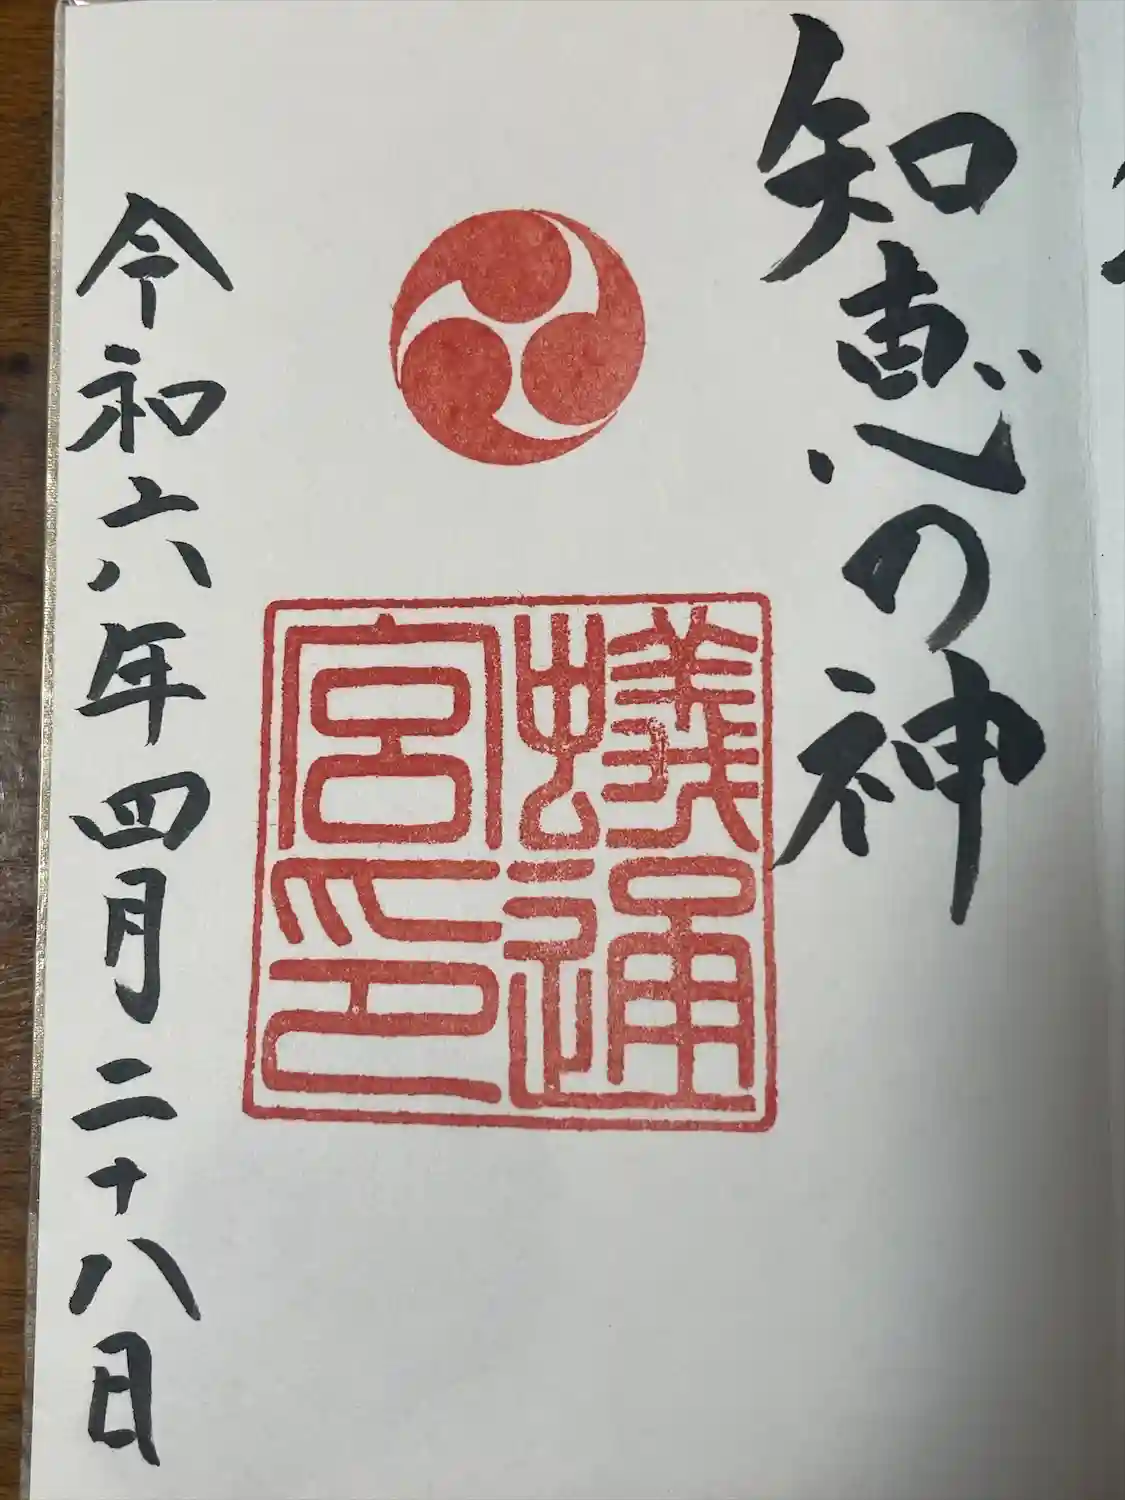 知恵の神
蟻通
宮印
令和六年四月二十八日